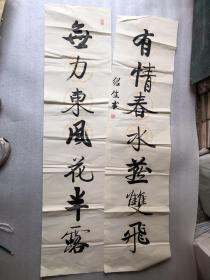 有情春水燕雙飛
無力東風花半露